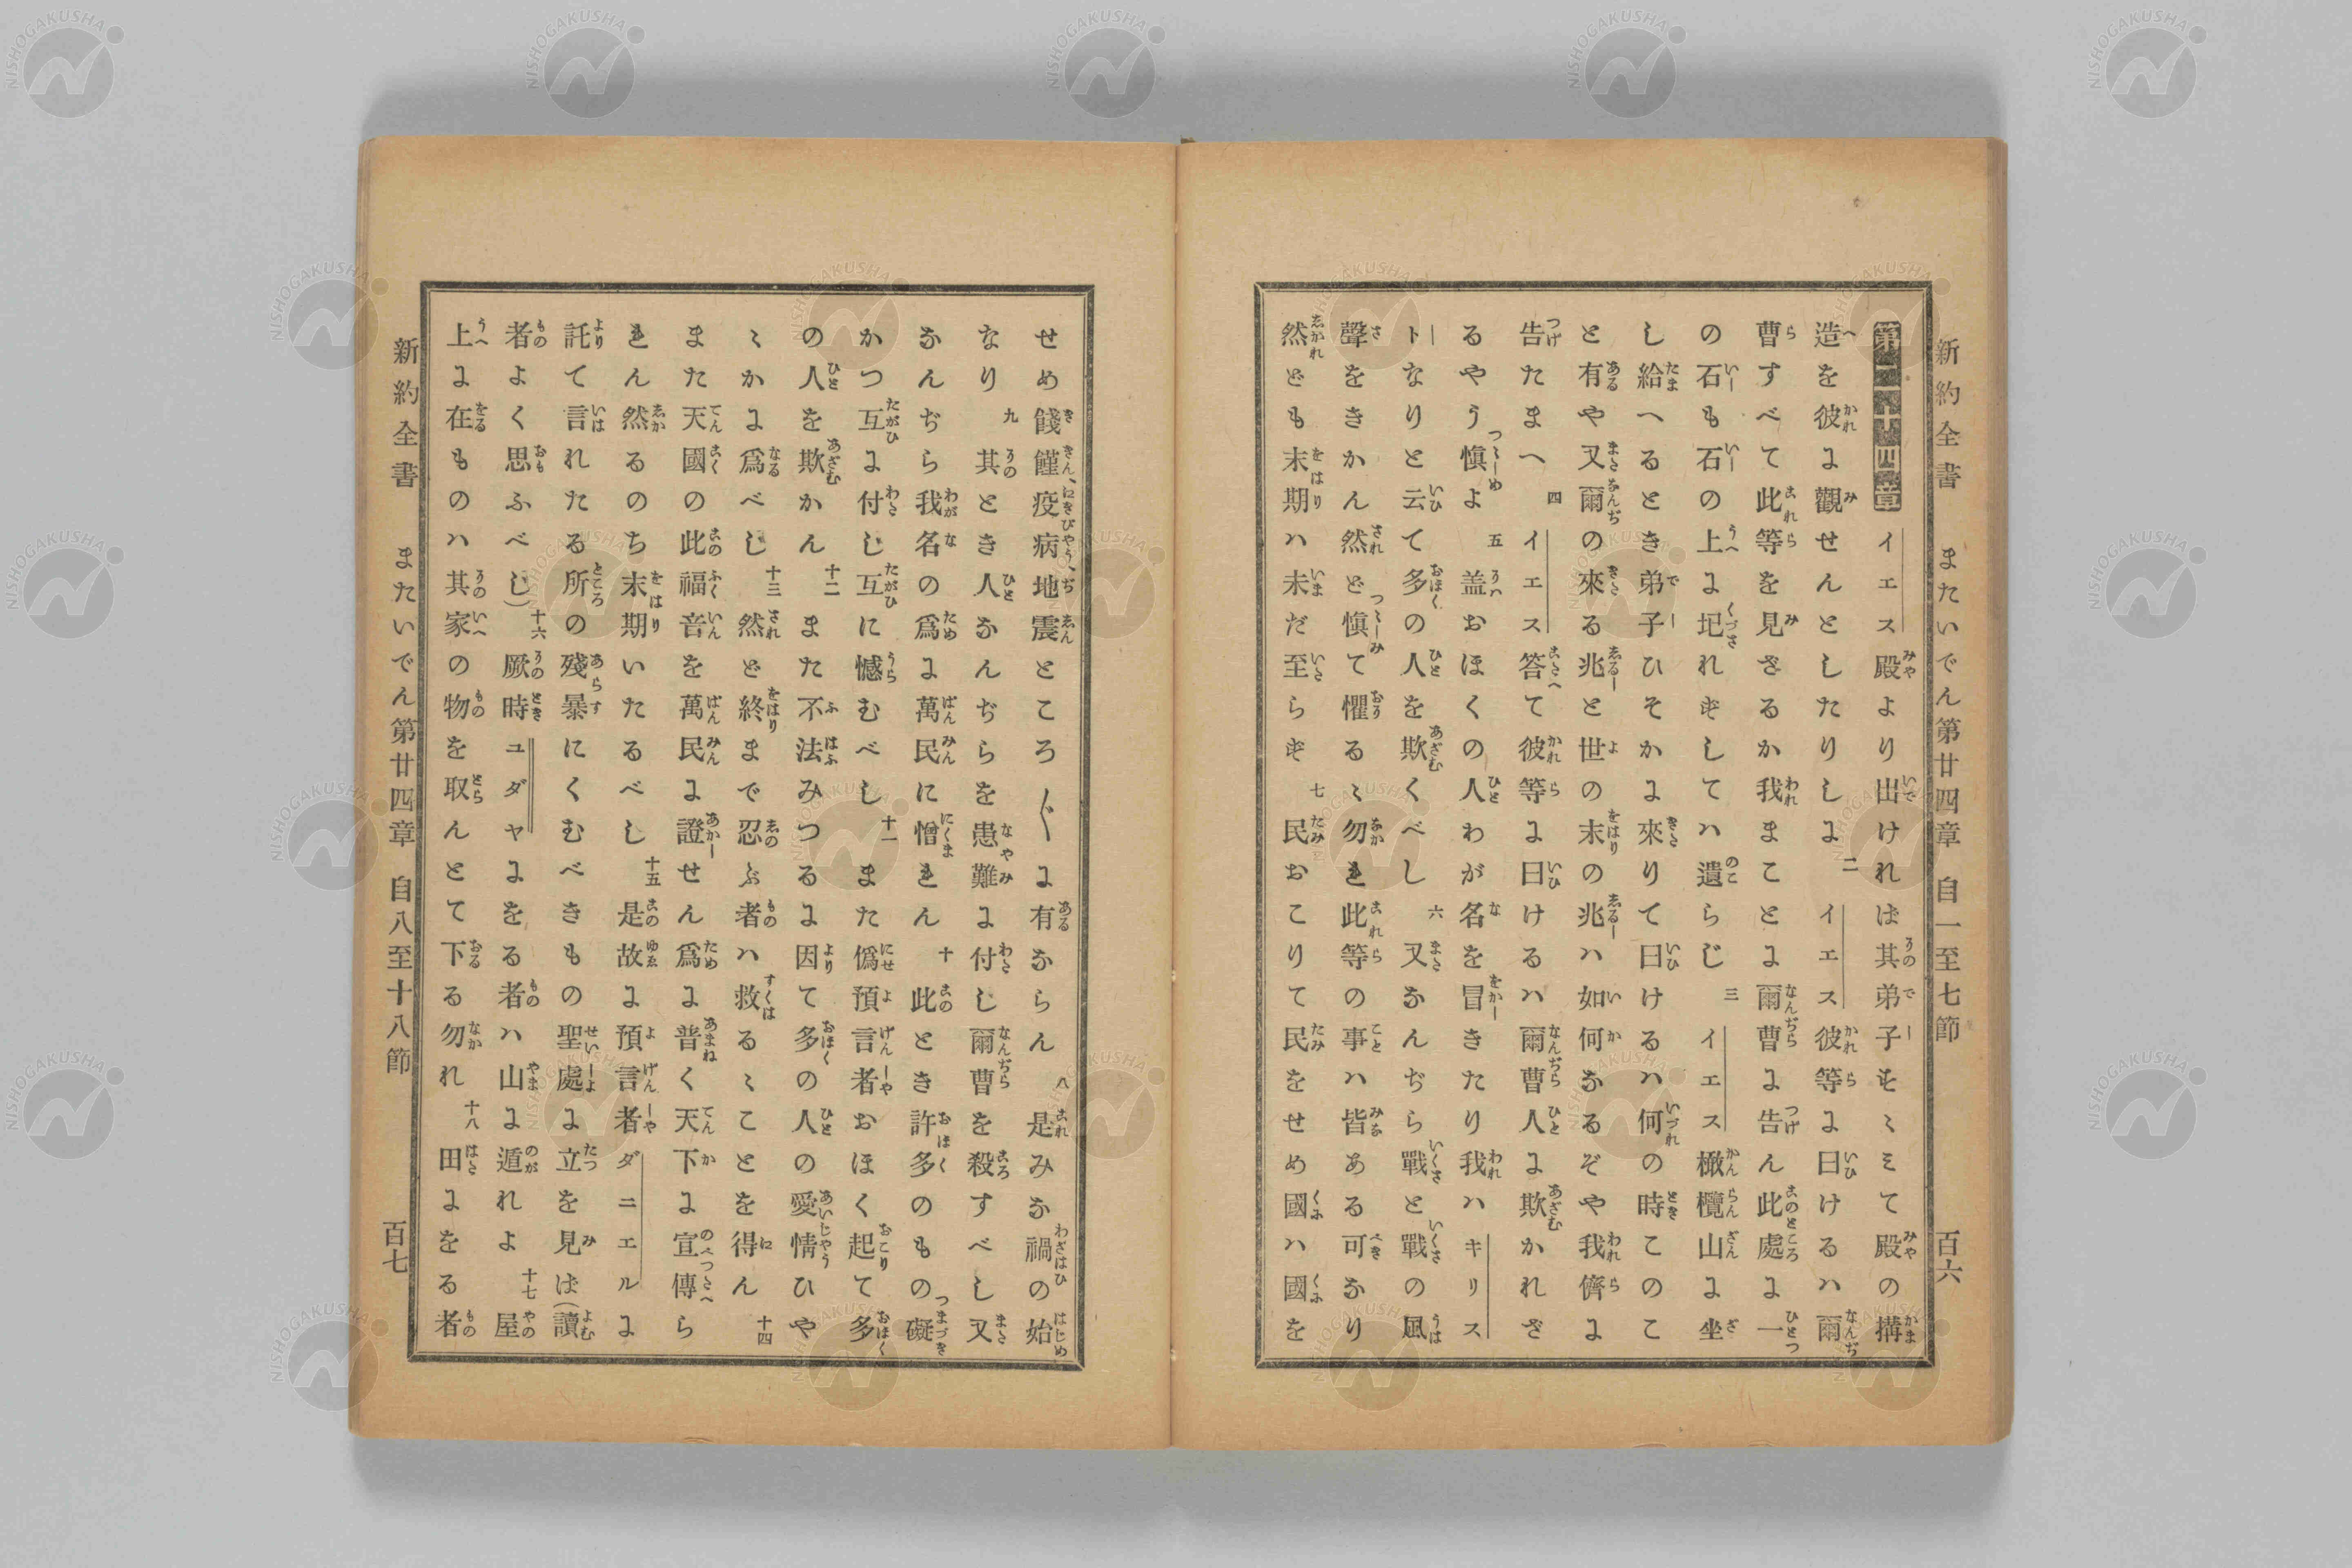 新約全書 またいでん第廿四章 自一至七節 百六
第二十四章 イエス殿より出ければ其弟子すゝミて殿の搆
造を彼に觀せんとしたりしに 二 イエス彼等に曰けるハ爾
曹すべて此等を見ざるか我まことに爾曹に告ん此處に一
の石も石の上に圮れずしてハ遺らじ 三 イエス橄欖山に坐
し給へるとき弟子ひそかに來りて曰けるハ何の時このこ
と有や又爾の來る兆と世の末の兆ハ如何なるぞや我儕に
告たまへ 四 イエス答て彼等に曰けるハ爾曹人に欺かれざ
るやう愼よ 五 盖おほくの人わが名を冒きたり我ハキリス
トなりと云て多の人を欺くべし 六 又なんぢら戰と戰の風
聲をきかん然ど愼て懼るゝ勿れ此等の事ハ皆ある可なり
然ども末期ハ未だ至らず 七 民おこりて民をせめ國ハ國を
せめ饑饉、疫病、地震ところ〴〵に有ならん 八 是みな禍の始
なり 九 其とき人なんぢらを患難に付し爾曹を殺すべし又
なんぢら我名の爲に萬民に憎れん 十 此とき許多のもの礙
かつ互に付し互に憾むべし 十一 また僞預言者おほく起て多
の人を欺かん 十二 また不法みつるに因て多の人の愛情ひや
ゝかに爲べし 十三 然ど終まで忍ぶ者ハ救るゝことを得ん 十四
また天國の此福音を萬民に證せん爲に普く天下に宣傳ら
れん然るのち末期いたるべし 十五 是故に預言者ダニエルに
託て言れたる所の殘暴にくむべきもの聖處に立を見ば(讀
者よく思ふべし) 十六 厥時ユダヤにをる者ハ山に遁れよ 十七 屋
上に在ものハ其家の物を取んとて下る勿れ 十八 田にをる者
新約全書 またいでん第廿四章 自八至十八節 百七